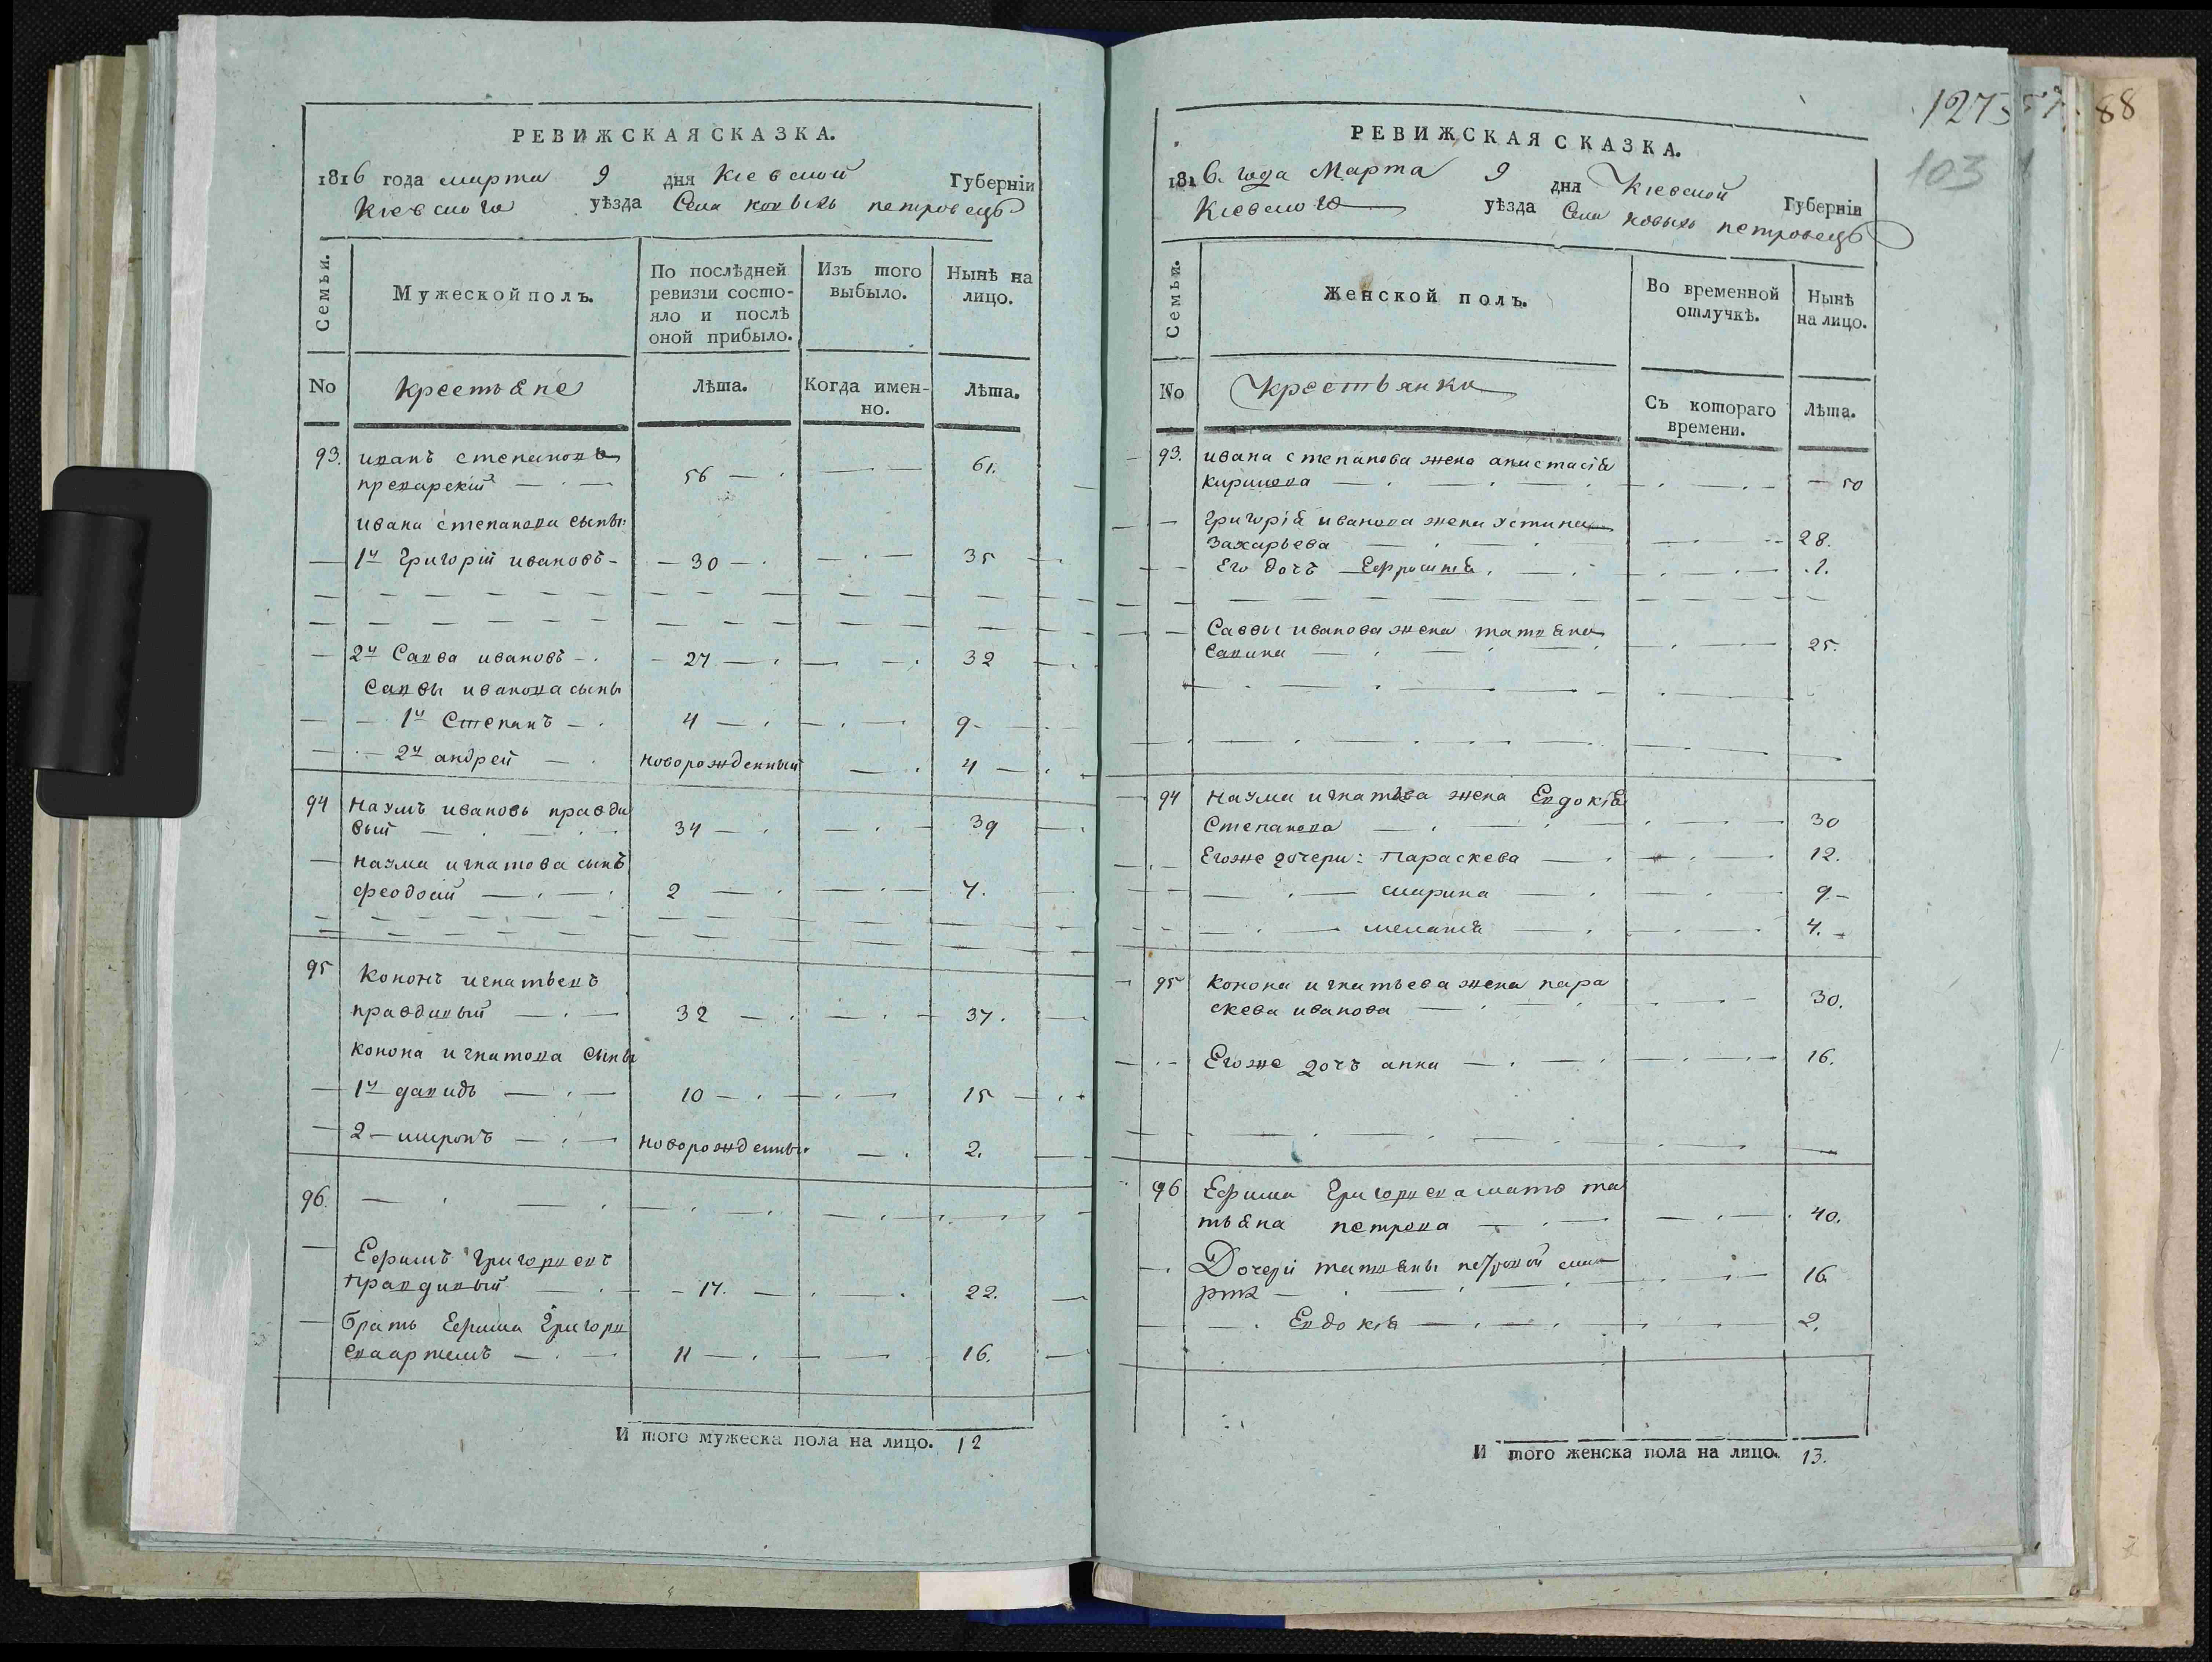 РЕВИЖСКАЯ СКАЗКА.
1816 года марта 9 дня Кіевской Губерніи
Кіевского уѣзда Села новыхъ петровецъ
Семьи.
Мужеской полъ.
По послѣдней
ревизіи состо-
яло и послѣ
оной прибыло.
Изъ того
выбыло.
Нынѣ на
лицо.
No
Крестьяне
Лѣта.
Когда имен-
но.
Лѣта.
93. иванъ степановъ
56 61.
ивана степанова сыны
1й Григорій ивановъ 30 35
2й Савва ивановъ 27 32
Саввы иванова сыны
1й Степанъ 4 9
2й андрей новорожденный 4
94 Наумъ ивановъ правди
вый 34 39
наума игнатова сынъ
феодосій 2 7.
95 Кононъ игнатьевъ
правдивый 32 37.
конона игнатова сыны
1й давидъ 10 15
2 миронъ новорожденный 2.
96.
Ефимъ Григориевъ
правдивый 17. 22.
братъ Ефима Григори
ева артемъ 11 16.
И того мужеска пола на лицо. 12
127 88
103
РЕВИЖСКАЯ СКАЗКА.
1816. года Марта 9 дня Кіевской Губерніи
Кіевского уѣзда Села новыхъ петровецъ
Семьи.
Женской полъ.
Во временной
отлучкѣ.
Нынѣ
на лицо.
No
Крестьянки
Съ котораго
времени.
Лѣта.
93. ивана степанова жена анастасія
Кирилова 50
григорія иванова жена устина
Захарьева 28.
Его дочъ Ефросинія 1.
Саввы иванова жена татьяна
Савина 25.
94 наума игнатьева жена Евдокія
Степанова 30
Егоже дочери: Параскева 12.
марина 9
меланія 4.
95 конона игнатьева жена пара
скева иванова 30.
Егоже дочъ анна 16.
96 Ефима Григориева мать та
тьяна петрова 40.
Дочери татьяны петровой ма
рта 16.
Евдокія 2.
И того женска пола на лицо. 13.